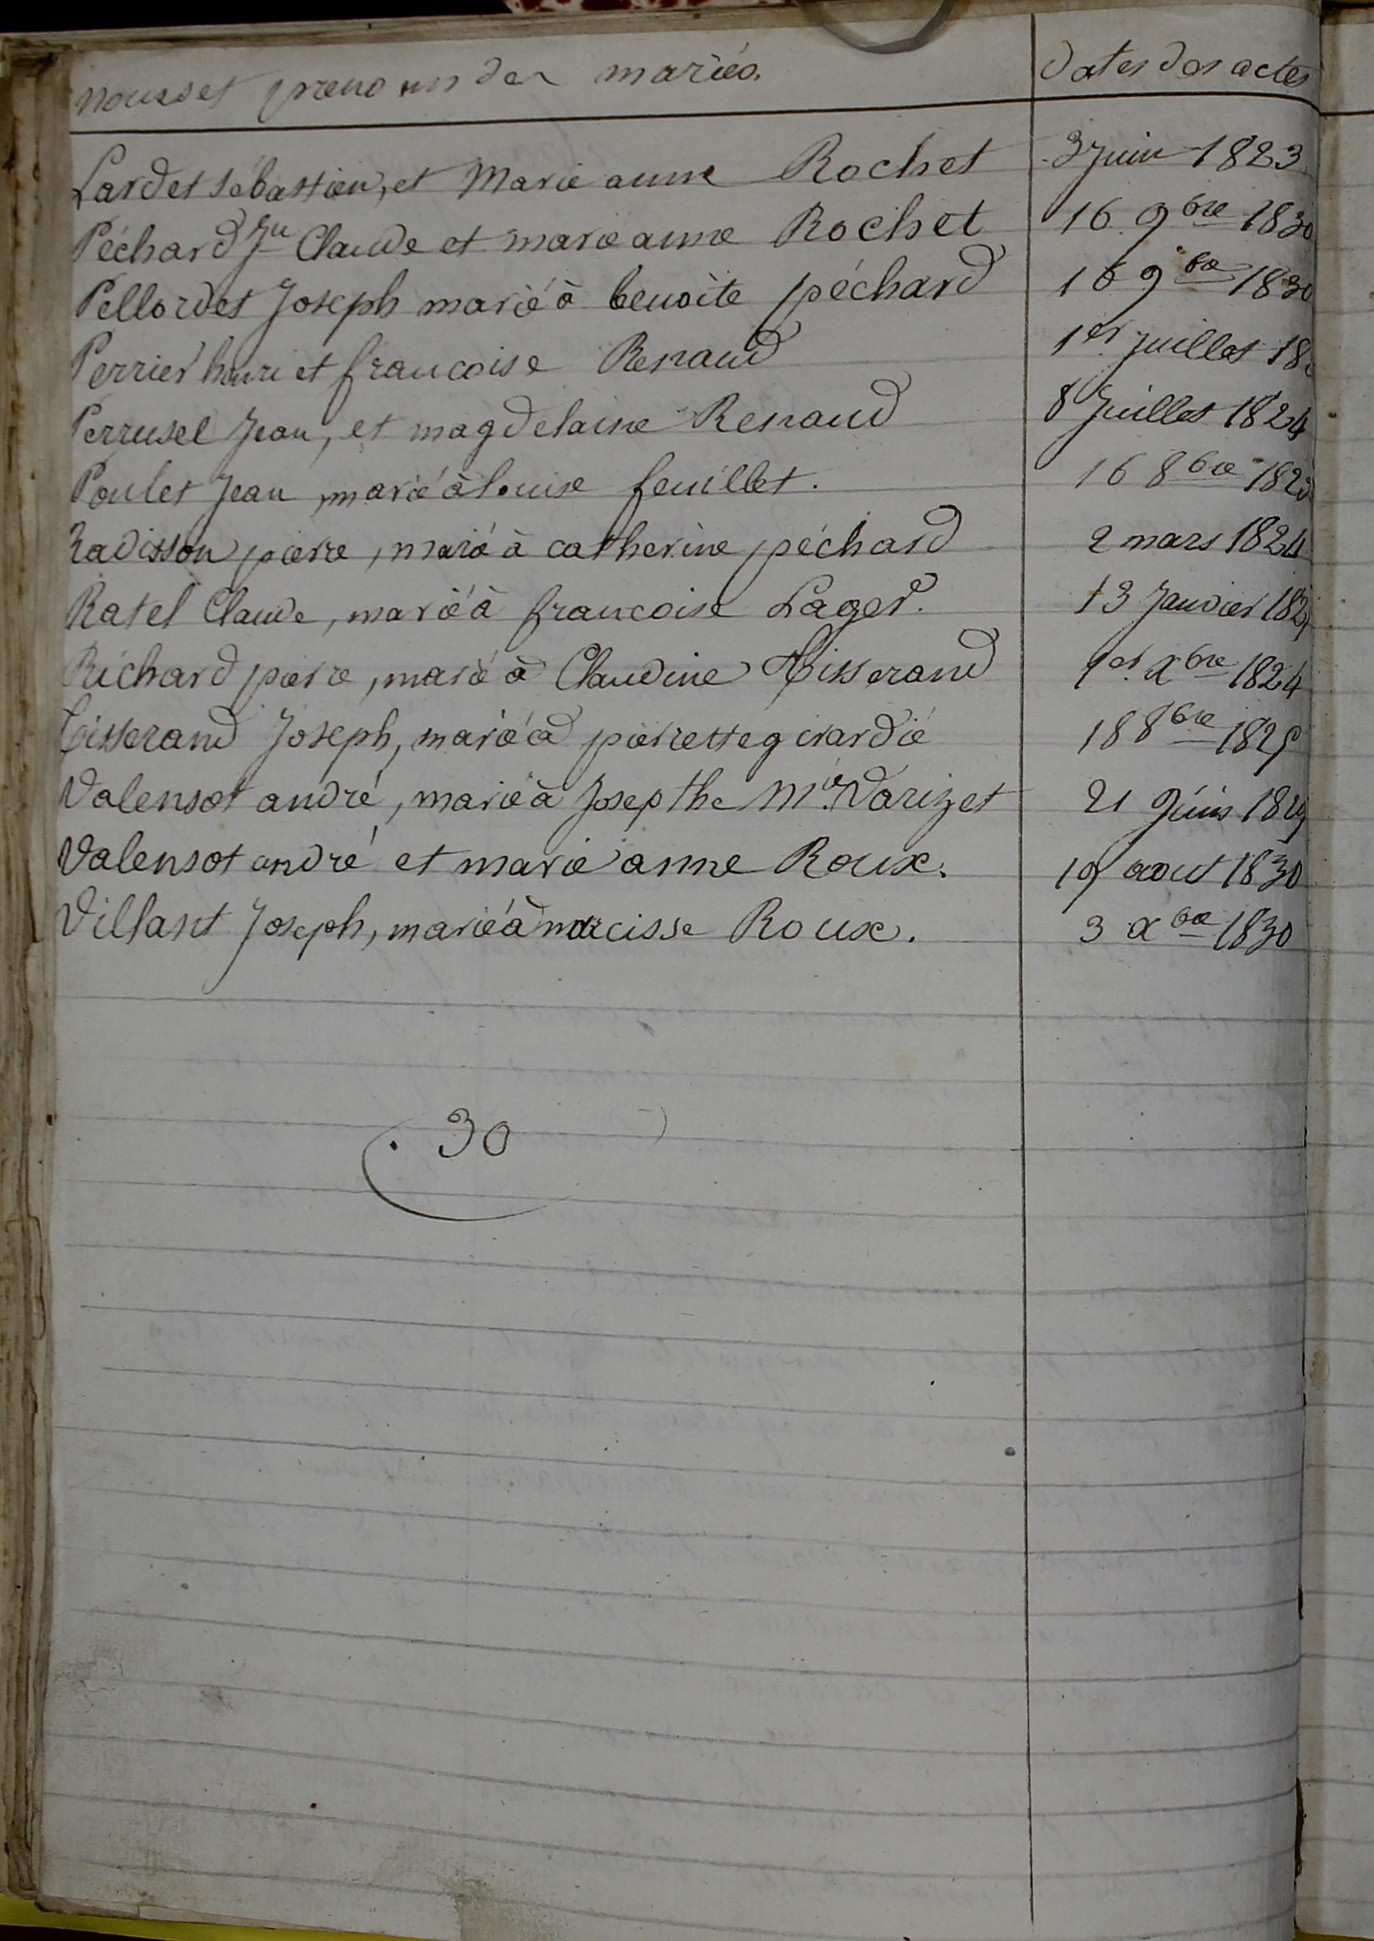 noms et prenoms des mariés. dates des actes
Lardet sébastien, et Marie anne Rochet 3 juin 1823
Péchard Jn Claude et marie anne Rochet 16 9bre 1830
Pellordet Joseph marié à benoite péchard 16 9bre 1830
Perrier henri et francoise Renaud 1er juillet
Perrusel Jean, et magdelaine Renaud 8 Juillet 1824
Poulet Jean, marié à louise feuillet. 16 8bre
Radisson pierre, marié à catherine péchard 2 mars 1824
Ratel Claude, marié à francoise Lager. 13 Janvier
Richard pierre, marié à Claudine Tisserand 1er xbre 1824
Tisserand Joseph, marié à pierrette girardié 18 8bre 1825
Valensot andré, marié à Josepthe Mie Varizet 21 Juin 1829
Valensot andré et marie anne Roux. 19 aout 1830
Villant Joseph, marié à narcisse Roux. 3 xbre 1830
30